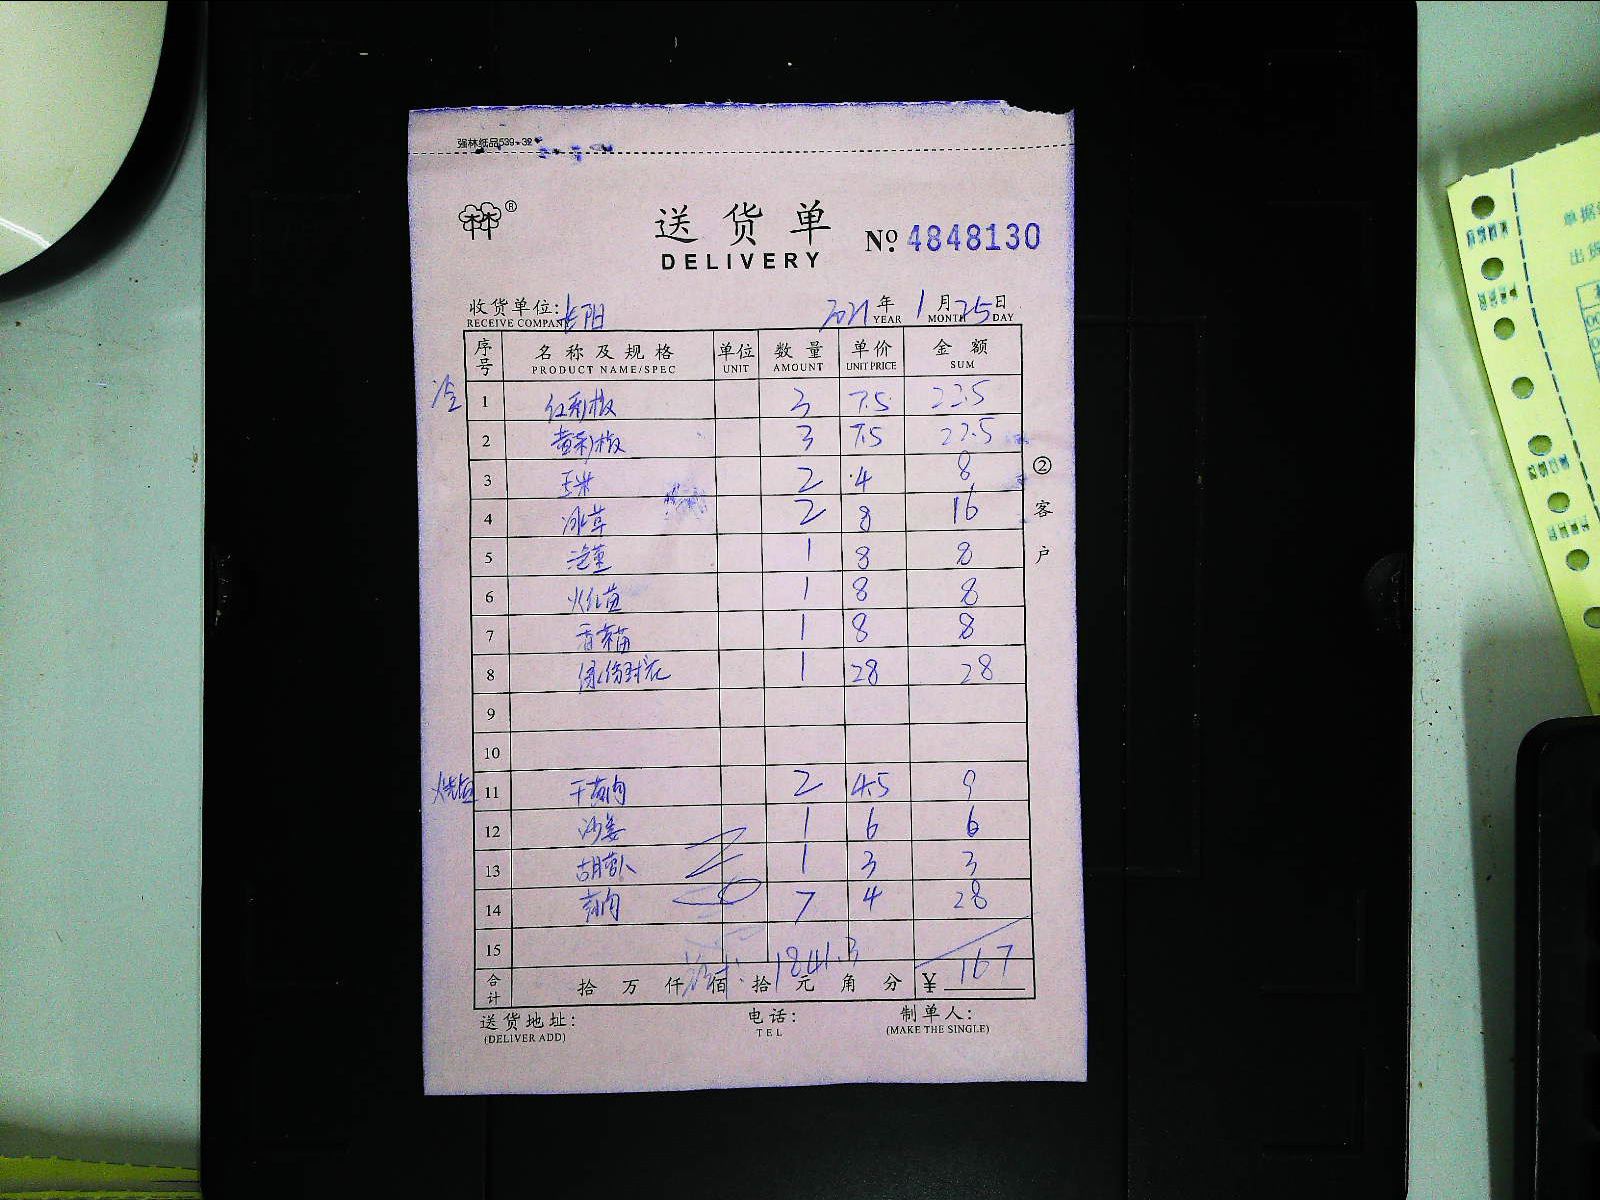 强林纸品539-32
送货单
DELIVERY
No. 4848130
收货单位: 长阳 2021年1月25日
RECEIVE COMPANY YEAR MONTH DAY
序号 名称及规格 单位 数量 单价 金额
PRODUCT NAME/SPEC UNIT AMOUNT UNIT PRICE SUM
冷
1 红彩椒 3 7.5 22.5
2 黄彩椒 3 7.5 22.5
3 玉米 2 4 8
4 冰草 2 8 16
5 1 8 8
6 火红苗 1 8 8
7 香菜苗 1 8 8
8 1 28 28
9
10
11 干葱肉 2 4.5 9
12 沙姜 1 6 6
13 胡萝卜 1 3 3
14 7 4 28
15
1841.3
合计 拾 万 仟 佰 拾 元 角 分 ¥ 167
送货地址: 电话: 制单人:
(DELIVER ADD) TEL (MAKE THE SINGLE)
② 客户
单据
出货